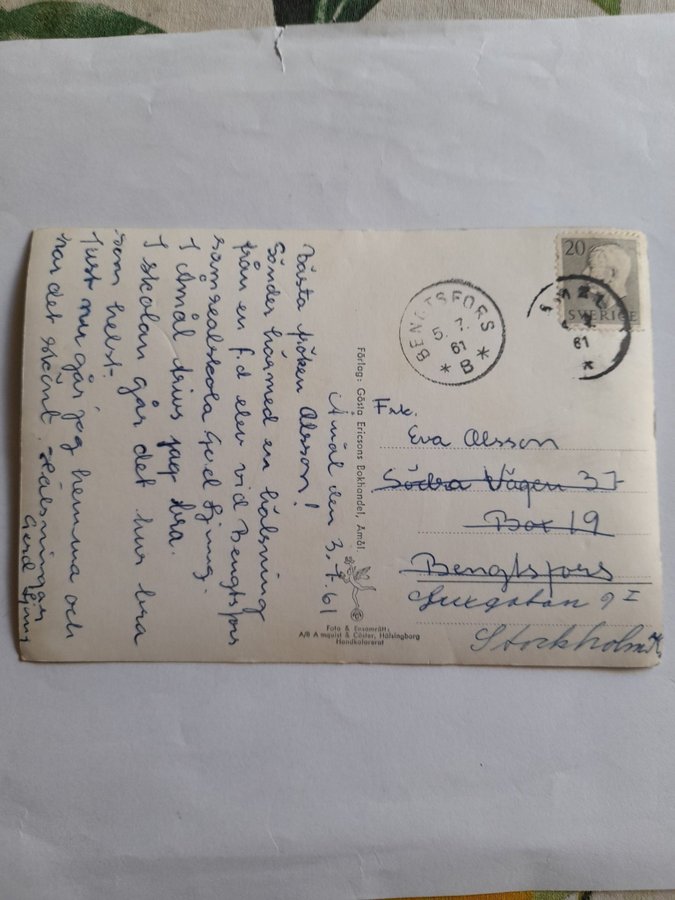 Åmål den 3.7.61
Bästa fröken Olsson!
Sänder härmed en hälsning
från en f.d elev vid Bengtsfors
samrealskola Gerd Ljung.
I Åmål trivs jag bra.
I skolan går det hur bra
som helst.
Just nu går jag hemma och
har det skönt. Hälsningar
Gerd Ljung
Förlag: Gösta Ericsons Bokhandel, Åmål.
Foto & Ensamrätt:
A/B Almquist & Cöster, Hälsingborg
Handkolorerat
BENGTSFORS
5. 7.
61
* B *
20
SVERIGE
61
Frk.
Eva Olsson
Södra Vägen 37
Box 19
Bengtsfors
9 I
Stockholm K.